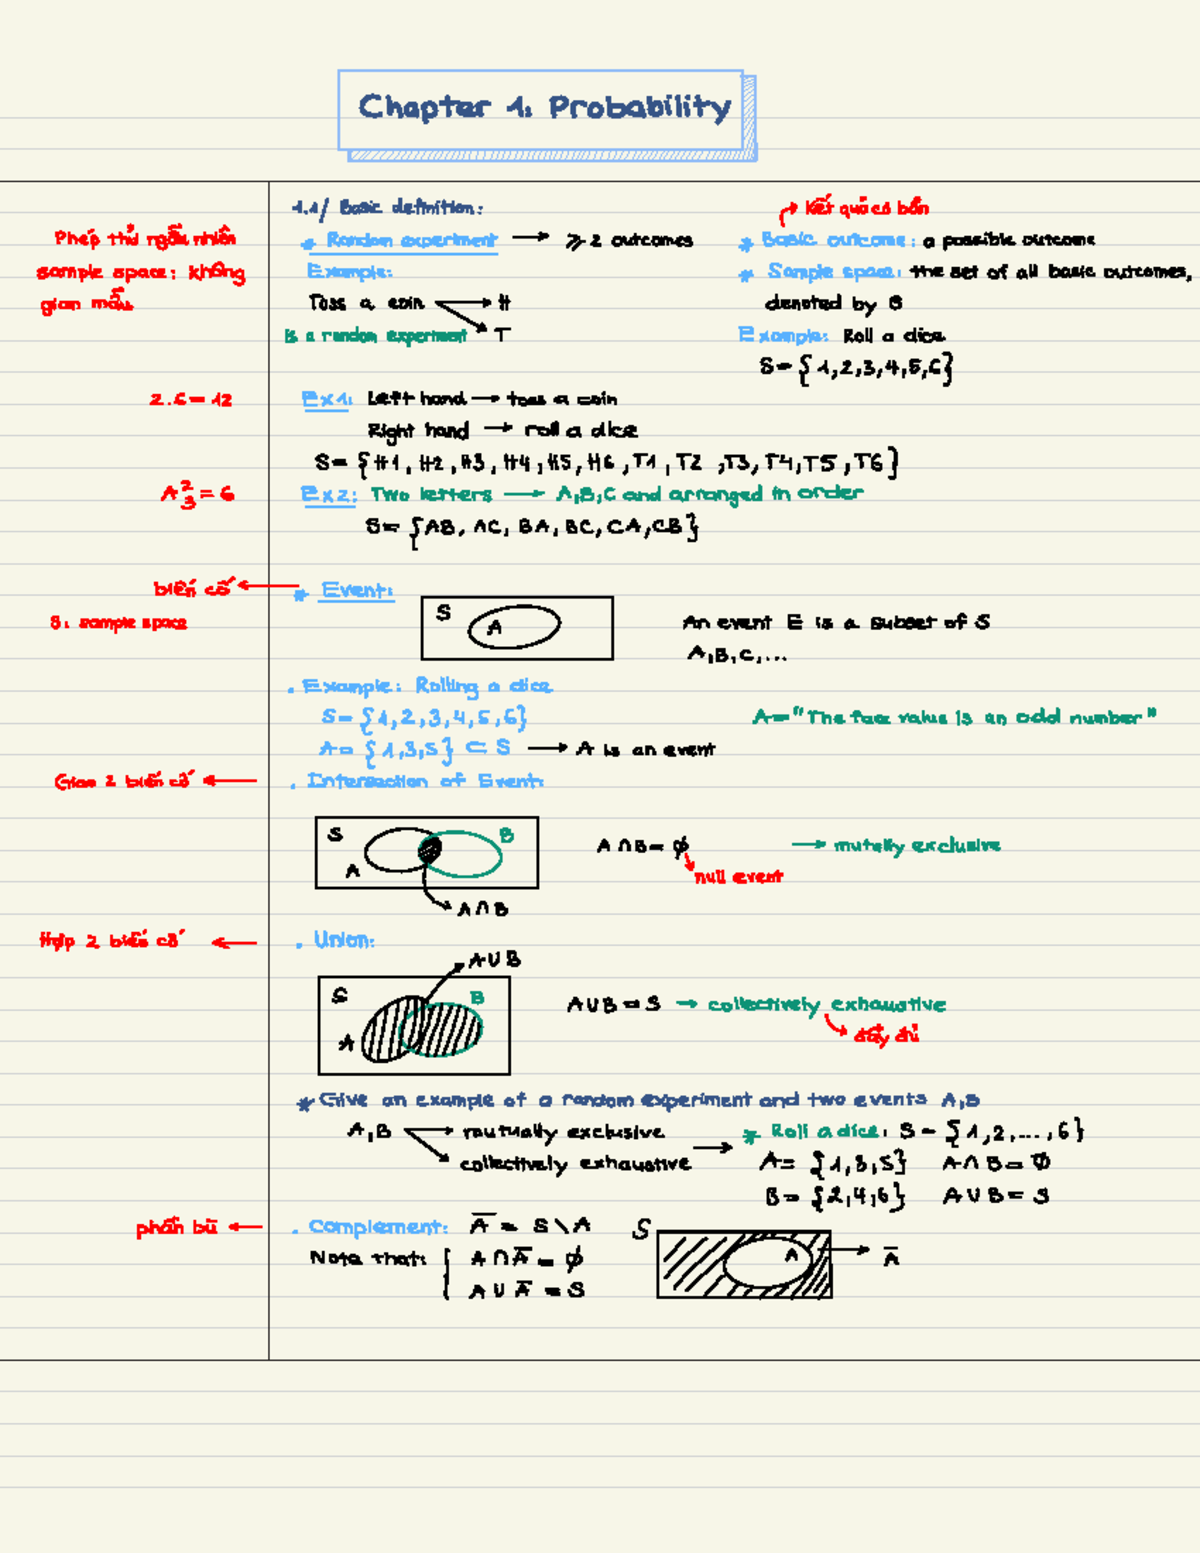 Chapter 1: Probability
1.1/ Basic definition:
Kết quả cơ bản
Phép thử ngẫu nhiên
* Random experiment → ≥ 2 outcomes
* Basic outcome: a possible outcome
sample space: không
gian mẫu
Example:
* Sample space: the set of all basic outcomes,
denoted by S
Toss a coin → H
→ T
is a random experiment
Example: Roll a dice
S = {1,2,3,4,5,6}
2.6 = 12
Ex1: Left hand → toss a coin
Right hand → roll a dice
S = {H1, H2, H3, H4, H5, H6, T1, T2, T3, T4, T5, T6}
A²₃ = 6
Ex2: Two letters → A,B,C and arranged in order
S = {AB, AC, BA, BC, CA, CB}
biến cố ← * Event:
S: sample space
S
A
An event E is a subset of S
A,B,C,...
. Example: Rolling a dice
S = {1,2,3,4,5,6}
A = "The face value is an odd number"
A = {1,3,5} ⊂ S → A is an event
Giao 2 biến cố ← . Intersection of Event:
S
B
A
A∩B
A∩B = ϕ → mutally exclusive
null event
Hợp 2 biến cố ← . Union:
A∪B
S
B
A
A∪B = S → collectively exhaustive
đầy đủ
* Give an example of a random experiment and two events A,B
A,B → mutually exclusive
→ collectively exhaustive
→ * Roll a dice: S = {1,2,...,6}
A = {1,3,5} A∩B = ∅
B = {2,4,6} A∪B = S
phần bù ← . Complement: A̅ = S \ A
Note that: { A∩A̅ = ϕ
A∪A̅ = S
S
A → A̅